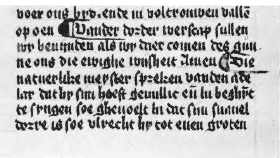 voer ons byd. ende in volcromven vallē
op oen Vander dorder werscap sullen
wy bevinden als wy daer comen des gun
ne ons die ewighe wijsheit Amen Die
natuerlike meyster spreken vanden ade
lar dat hy sijn hoeft gevullic en̄ in beghīt
te syngen soe ghenoelt in dat sijn snauel
dorre is soe vlrecht hy tot enen groten